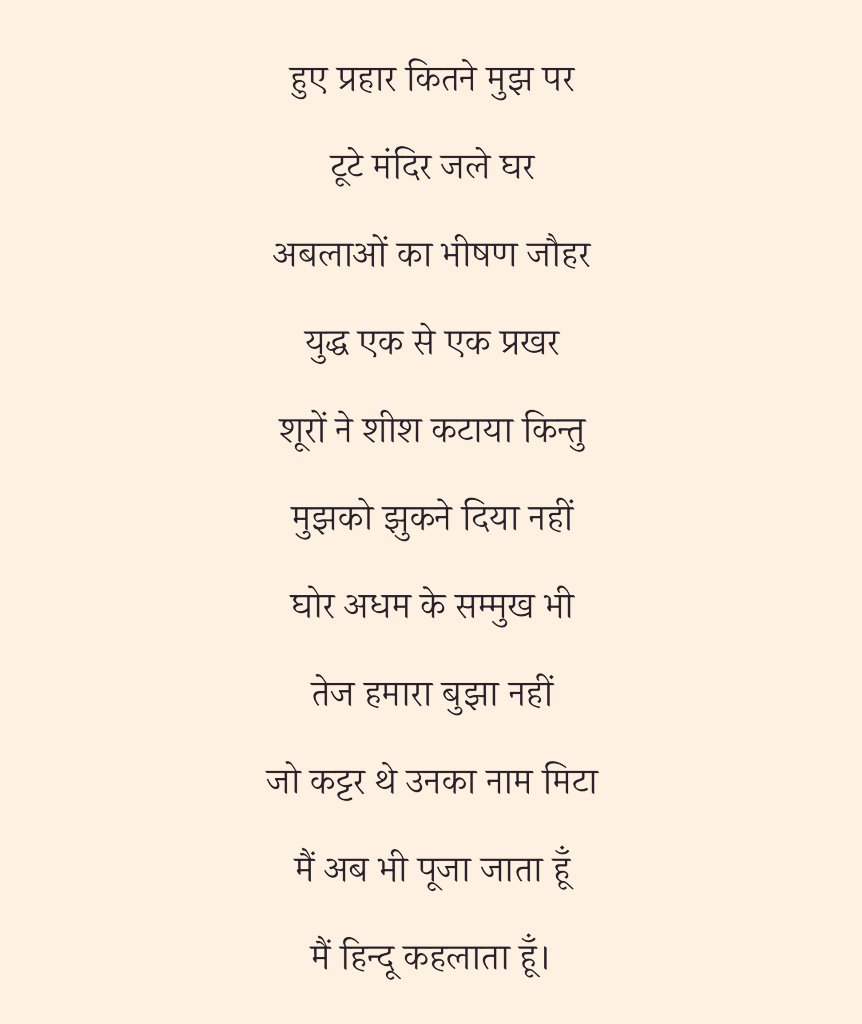 हुए प्रहार कितने मुझ पर
टूटे मंदिर जले घर
अबलाओं का भीषण जौहर
युद्ध एक से एक प्रखर
शूरों ने शीश कटाया किन्तु
मुझको झुकने दिया नहीं
घोर अधम के सम्मुख भी
तेज हमारा बुझा नहीं
जो कट्टर थे उनका नाम मिटा
मैं अब भी पूजा जाता हूँ
मैं हिन्दू कहलाता हूँ।